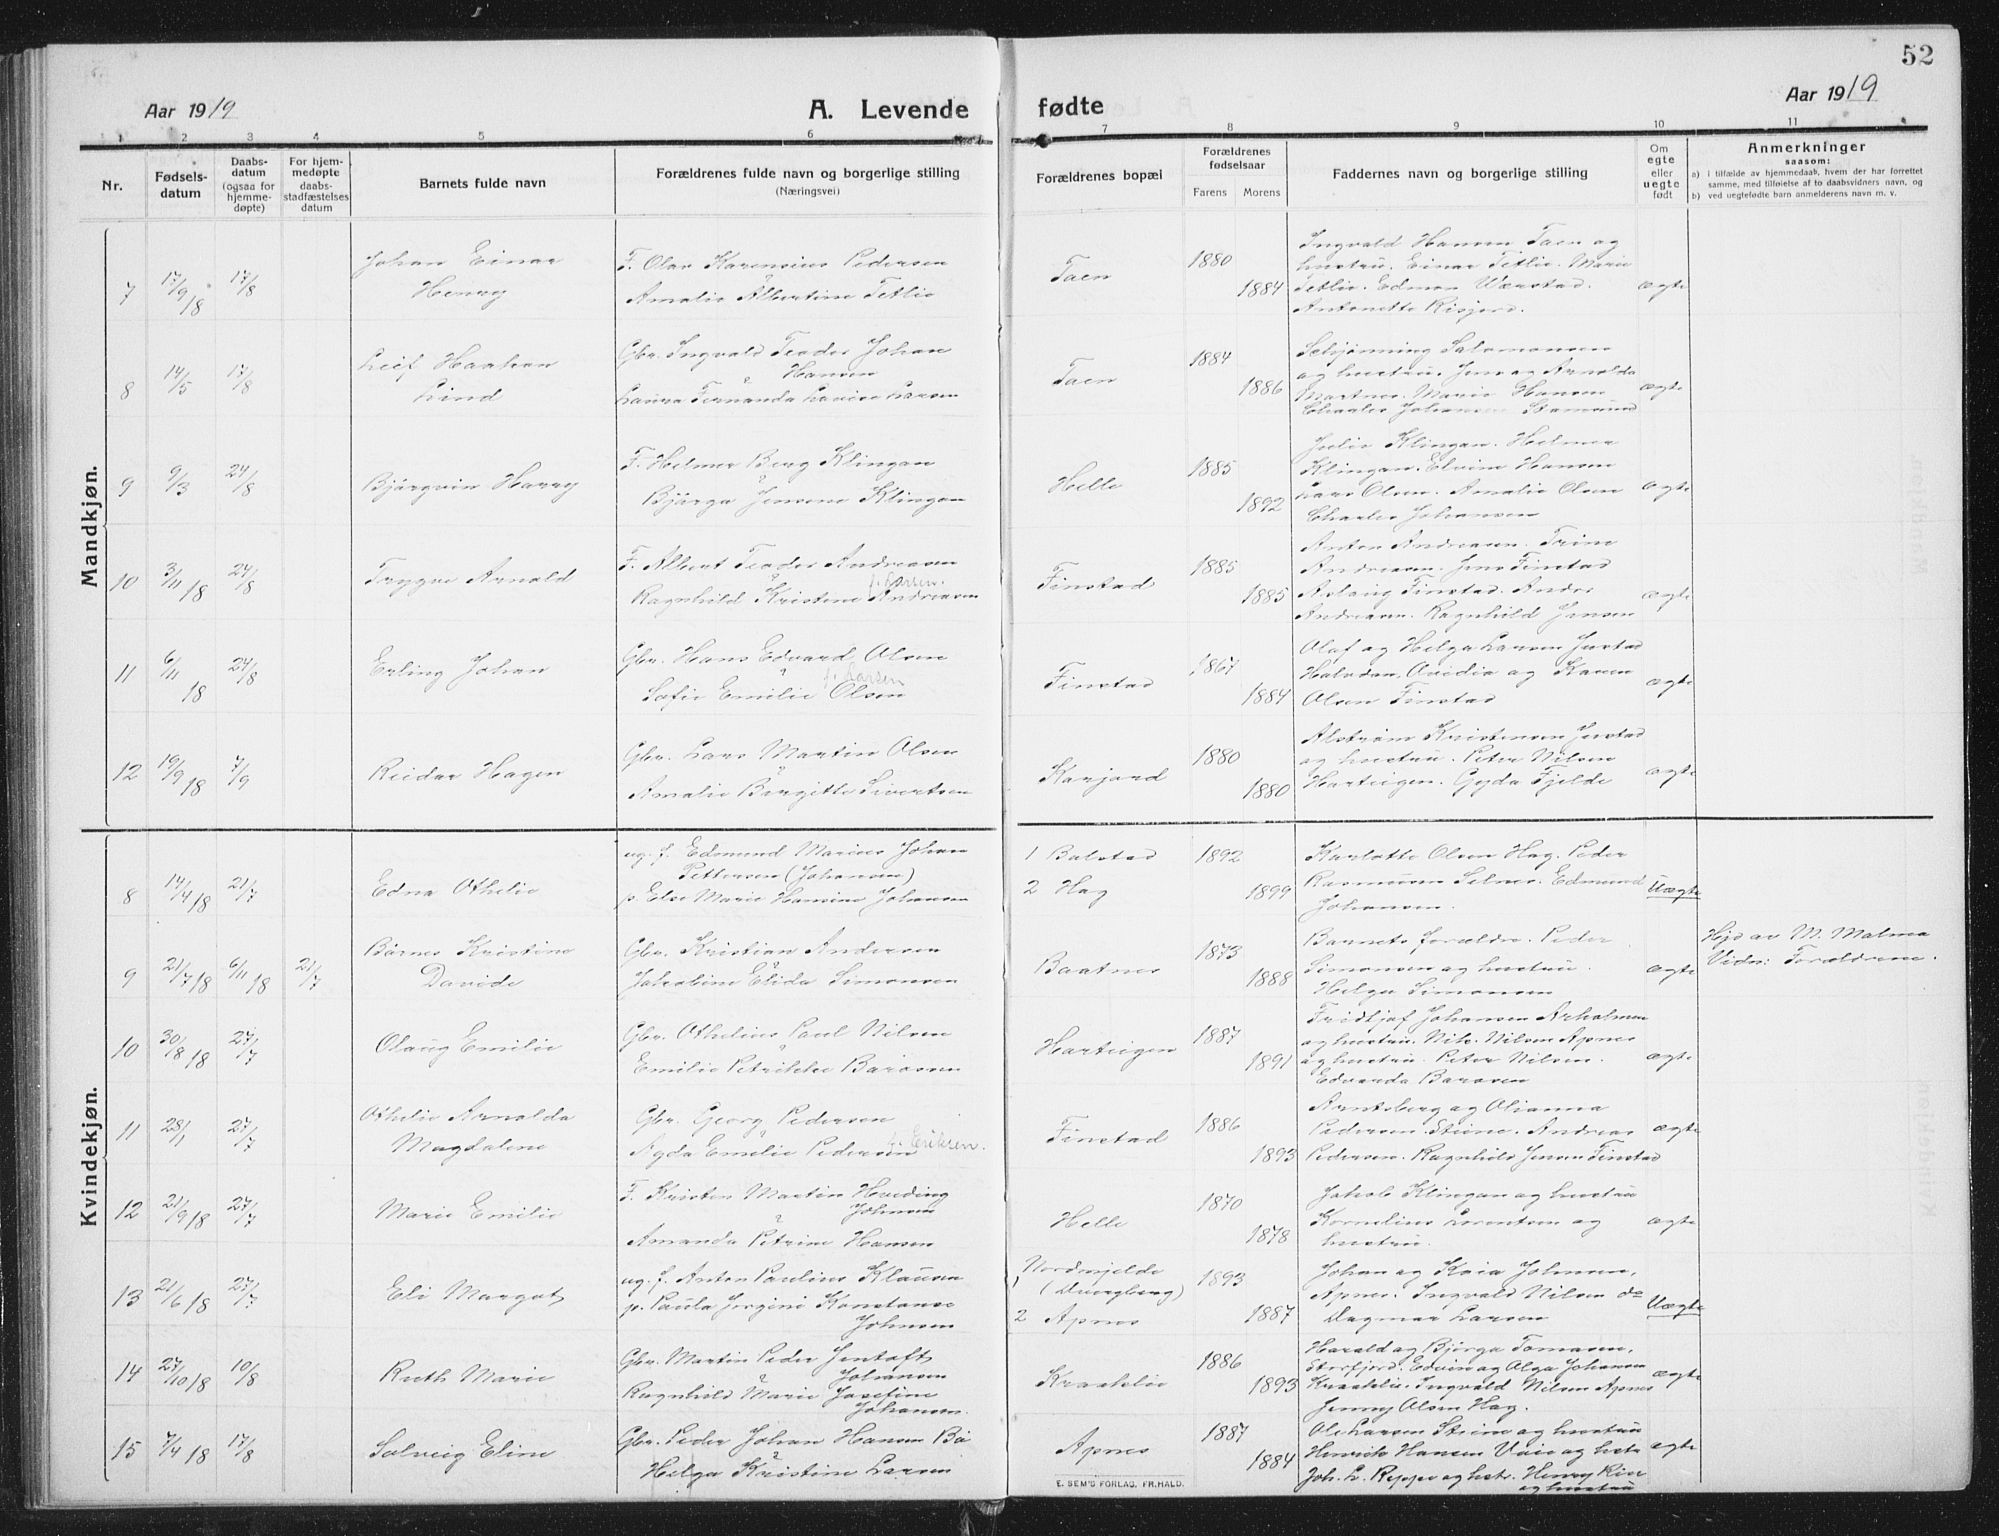 52
Aar 1919
A. Levende
fødte
Aar 1919
1 2 3 4 5 6 7 8 9 10 11
Nr.
Fødsels-
datum
Daabs-
datum
(ogsaa for
hjemme-
døpte)
For hjem-
medøpte
daabs-
stadfæstelses
datum
Barnets fulde navn
Forældrenes fulde navn og borgerlige stilling
(Næringsvei)
Forældrenes bopæl
Forældrenes
fødselsaar
Farens Morens
Faddernes navn og borgerlige stilling
Om
egte
eller
uegte
født
Anmerkninger
saasom:
a) i tilfælde av hjemmedaab, hvem der har forrettet
samme, med tilføielse af to daabsvidners navn, og
b) ved uegtefødte barn anmelderens navn m. v.
Mandkjøn.
7 17/9 18 17/8
Johan Einar
Henry
F. Olav Karensius Pedersen
Amalie Albertine Tetlie
Taen 1880 1884
Ingvald Hansen Taen og
hustru. Einar Tetlie. Marie
Tetlie. Edmon Værstad.
Antonette Risjord.
ægte
8 14/5 17/8
Leif Haakon
Lind
Gbr. Ingvald Teodor Johan
Hansen
Laura Fernanda Lovise Larsen
Taen 1884 1886
Schjønning Salomonsen
og hustru. Jens og Arnolda
Martnes. Marie Hansen
Charles Johansen Stamsund
ægte
9 9/3 24/8
Bjørgvin Harry
F. Helmer Berg Klingan
Bjørga Jensene Klingan
Helle 1885 1892
Julie Klingan. Helmer
Klingan. Elvine Hansen
Lars Olsen. Amalie Olsen
Charles Johansen
ægte
10 3/11 18 24/8
Trygve Arnold
F. Albert Teodor Andreasen
f. Larsen.
Ragnhild Kristine Andreasen
Finstad 1885 1885
Anton Andreasen. Trine
Andreasen. Jens Finstad
Aslaug Finstad. Andor
Andreasen. Ragnhild Jensen
ægte
11 6/11 18 24/8
Erling Johan
Gbr. Hans Edvard Olsen
f. Larsen
Sofie Emilie Olsen
Finstad 1867 1884
Olaf og Helga Larsen Justad
Halvdan, Ovidia og Karen
Olsen Finstad
ægte
12 19/9 18 7/9
Reidar Hagen
Gbr. Lars Martin Olsen
Amalie Birgitte Sivertsen
Karjord 1880 1880
Alstrøm Kristensen Justad
og hustru. Peter Nilsen
Hartvigen. Gyda Fjelde
ægte
Kvindekjøn.
8 14/4 18 21/7
Edna Othelie
ug. f. Edmund Marius Johan
Pettersen (Johansen)
p. Else Marie Hansine Johansen
1 Balstad
2 Hag
1892 1899
Karlotte Olsen Hag. Peder
Rasmusen Selnes. Edmund
Johansen.
Uægte
9 21/7 18 6/11 18 21/7
Børnes Kristine
Davide
Gbr. Kristian Andersen
Jakobine Elida Simonsen
Baatnes 1873 1888
Barnets forældre. Peder
Simonsen og hustru.
Helga Simonsen
ægte
Hjd av M. Malma
Vidn: Forældrene.
10 30/8 18 27/7
Olaug Emilie
Gbr. Othelius Paul Nilsen
Emilie Petrikke Barosen
Hartvigen 1887 1891
Fridtjof Johansen Arholmen
og hustru. Nik. Nilsen Apnes
og hustru. Peter Nilsen.
Edvarda Barosen
ægte
11 28/1 27/7
Othelie Arnolda
Magdalene
Gbr. Georg Pedersen
f. Eriksen.
Agda Emilie Pedersen
Finstad 1886 1893
Arntsberg og Olianna
Pedersen Steine. Andreas
Pedersen. Ragnhild Jensen Finstad
ægte
12 21/9 18 27/7
Marie Emilie
F. Kristen Martin Hveding
Johnsen
Amanda Petrine Hansen
Helle 1870 1878
Jakob Klingan og hustru
Kornelius Lorentsen og
hustru.
ægte
13 21/6 18 27/7
Eli Margot
ug. f. Anton Paulius Klausen
p. Paula Jorgine Konstanse
Johnsen
1 Nordmjelde
(Dvergberg)
2 Apnes
1893 1887
Johan og Kaia Johnsen,
Apnes. Ingvald Nilsen do
Dagmar Larsen
Uægte
14 27/10 18 10/8
Ruth Marie
Gbr. Martin Peder Jentoft
Johansen
Ragnhild Marie Josefine
Johansen.
Kraaklie 1886 1893
Harald og Bjørga Tomasen,
Storfjord. Edvin og Olga Johansen
Kraaklie. Ingvald Nilsen Apnes
Jenny Olsen Hag.
ægte
15 7/4 18 17/8
Solveig Eline
Gbr. Peder Johan Hansen Bø
Helga Kristine Larsen
Apnes 1887 1884
Ole Larsen Steine og hustru
Henrik Hansen Vaie og hstr
Joh. L. Reppe og hstr. Henry Riise
og hustru
ægte
E. SEM'S FORLAG, FR.HALD.